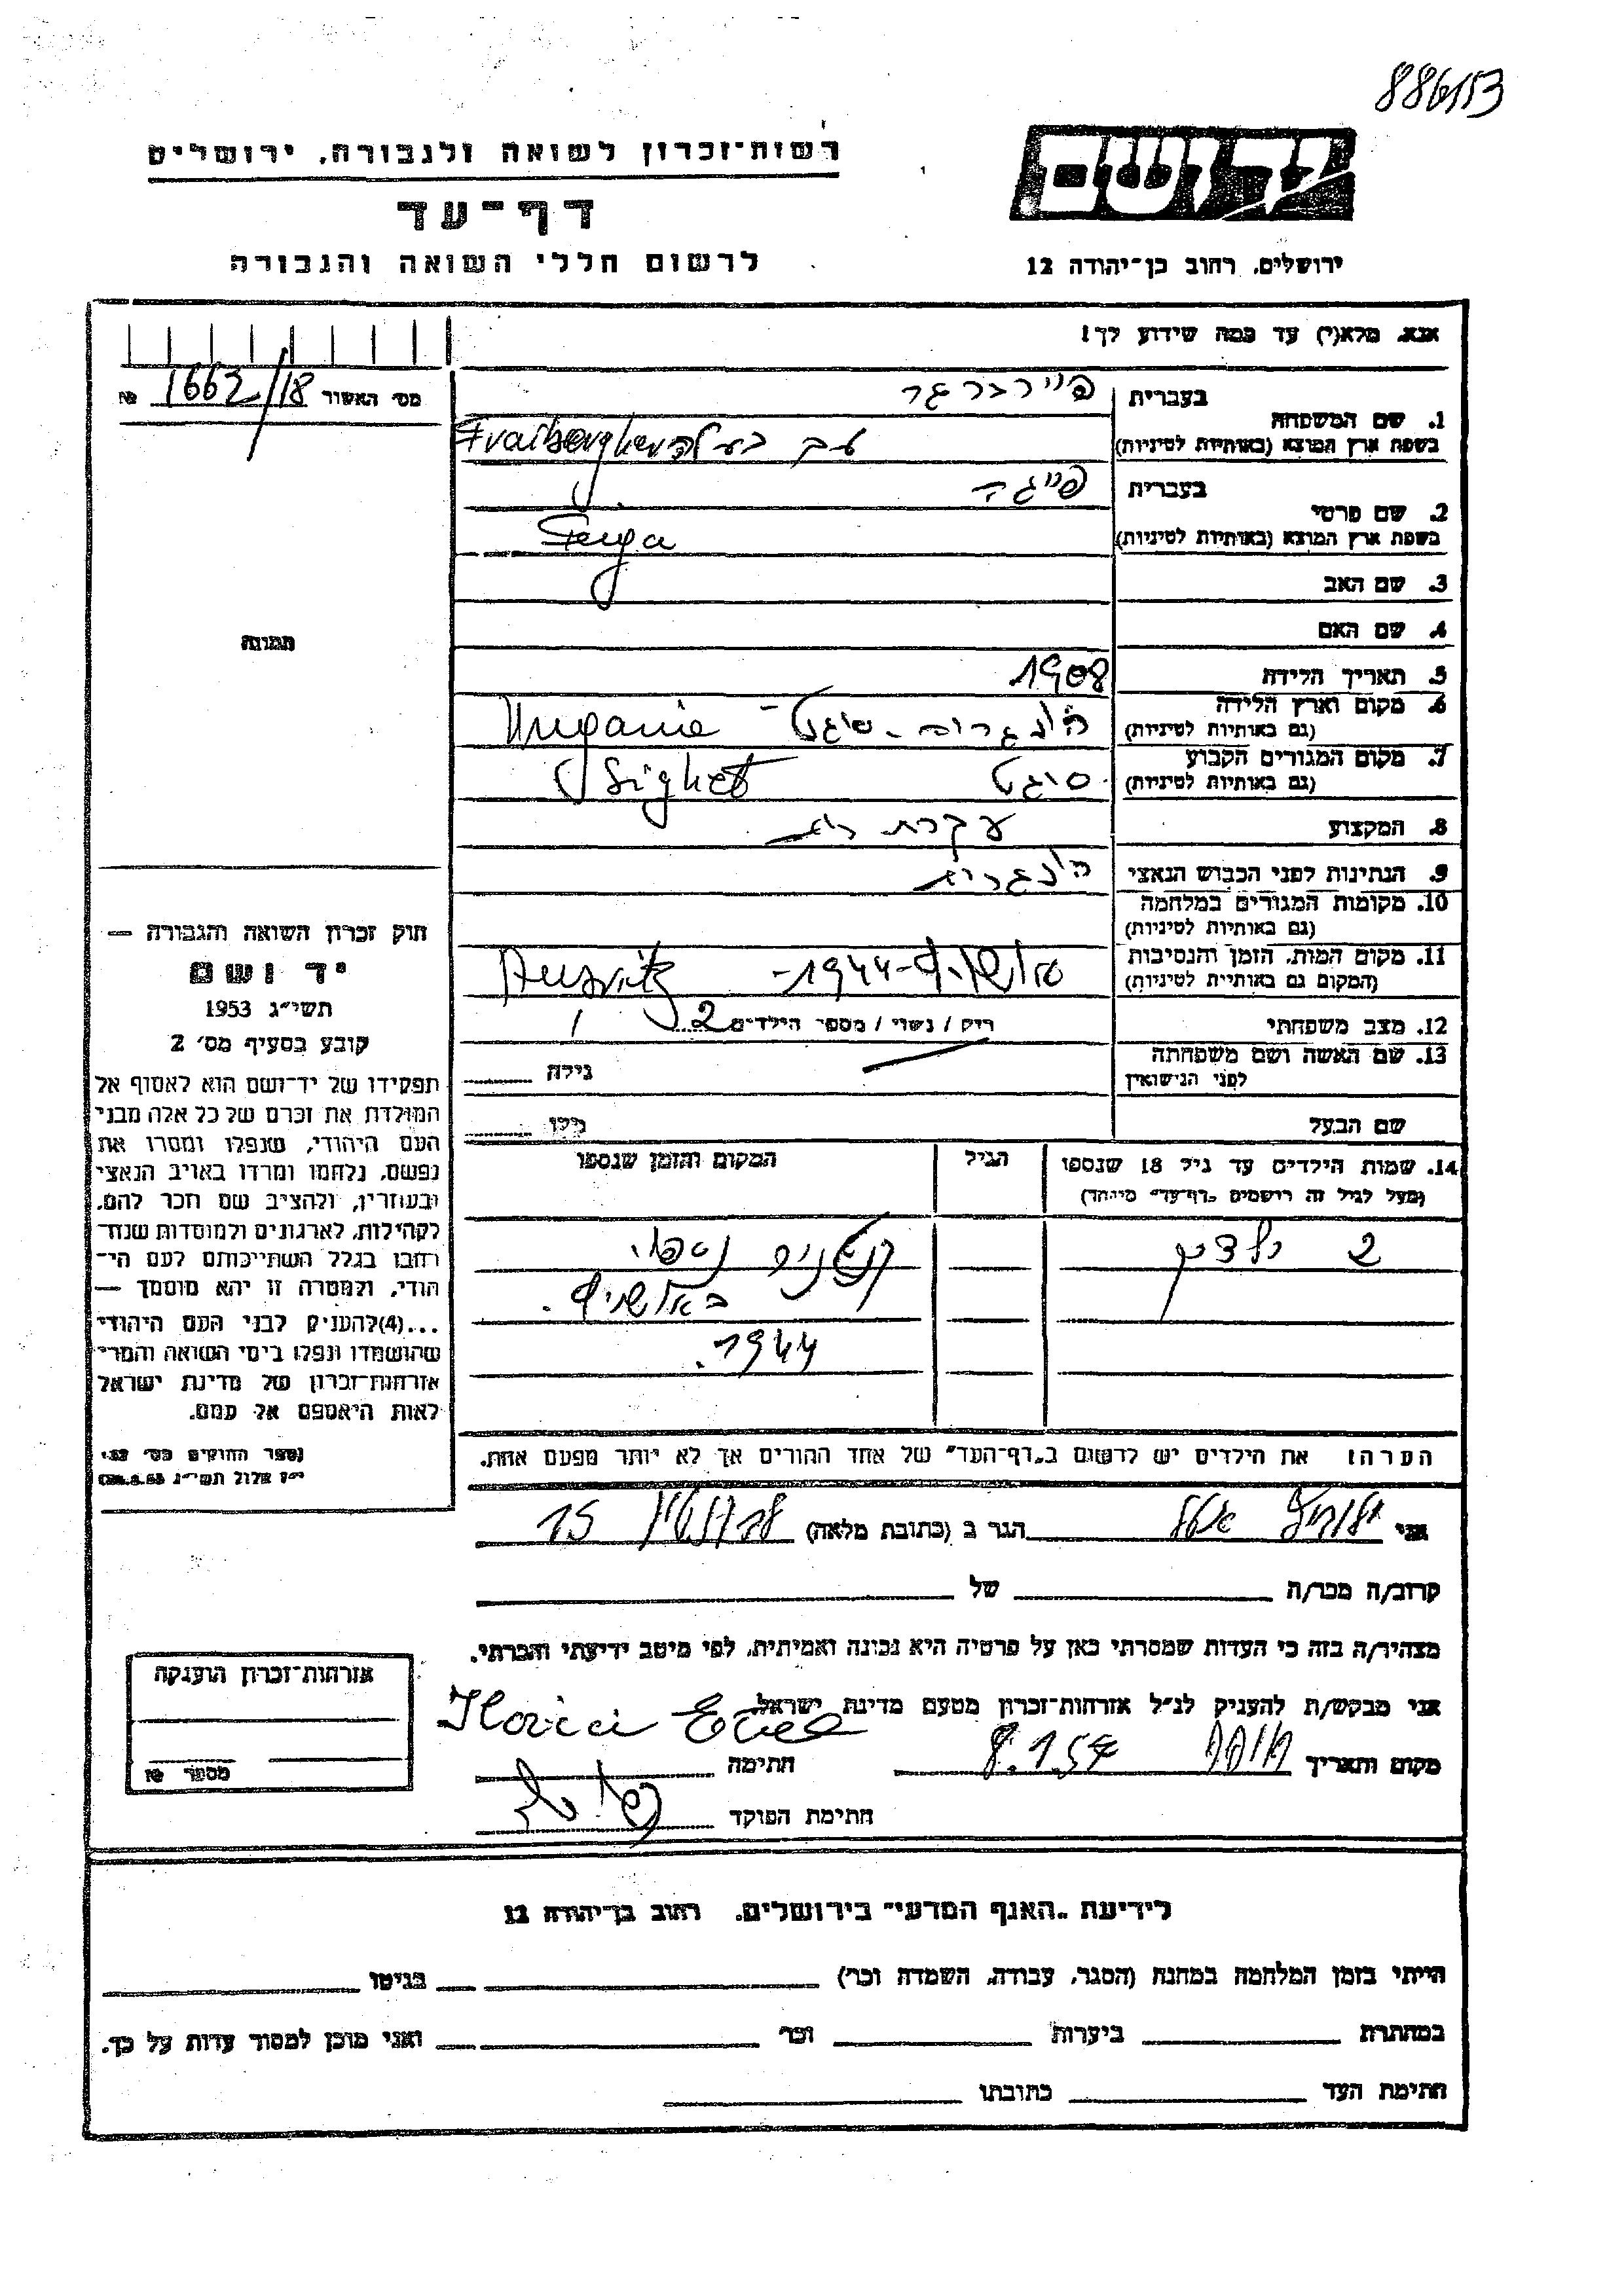 886153
רשות־זכרון לשואה ולגבורה, ירושלים
דף־עד
לרשום חללי השואה והגבורה
יד ושם
ירושלים, רחוב בן־יהודה 12
אנא, מלא(י) עד כמה שידוע לך!
מס׳ האשור 1663/18 №
תמונה
1. שם המשפחה
בעברית פיירברגר
בשפת ארץ המוצא (באותיות לטיניות)
2. שם פרטי
בעברית פייגה
בשפת ארץ המוצא (באותיות לטיניות) Feuga
3. שם האב
4. שם האם
5. תאריך הלידה 1908
6. מקום וארץ הלידה הונגריה - סיגט - Ungarie
(גם באותיות לטיניות)
7. מקום המגורים הקבוע סיגט Sighet
(גם באותיות לטיניות)
8. המקצוע עקרת בית
9. הנתינות לפני הכבוש הנאצי הונגרית
10. מקומות המגורים במלחמה
(גם באותיות לטיניות)
11. מקום המות, הזמן והנסיבות אושוויץ - 1944 - Ausvitz
(המקום גם באותיות לטיניות)
12. מצב משפחתי רוק / נשוי / מספר הילדים 2
13. שם האשה ושם משפחתה
לפני הנישואין גילה
שם הבעל גילו
14. שמות הילדים עד גיל 18 שנספו
(מעל לגיל זה רושמים „דף־עד” מיוחד)
הגיל
המקום והזמן שנספו
2 ילדים
קטנים נספו
באושוויץ.
1944.
הערה: את הילדים יש לרשום ב„דף־העד” של אחד ההורים אך לא יותר מפעם אחת.
חוק זכרון השואה והגבורה —
יד ושם
תשי״ג 1953
קובע בסעיף מס׳ 2
תפקידו של יד־ושם הוא לאסוף אל
המולדת את זכרם של כל אלה מבני
העם היהודי, שנפלו ומסרו את
נפשם, נלחמו ומרדו באויב הנאצי
ובעוזריו, ולהציב שם וזכר להם,
לקהילות, לארגונים ולמוסדות שנח־
רבו בגלל השתייכותם לעם הי־
הודי, ולמטרה זו יהא מוסמך —
...(4)להעניק לבני העם היהודי
שהושמדו ונפלו בימי השואה והמרי
אזרחות־זכרון של מדינת ישראל
לאות היאספם אל עמם.
(ספר החוקים מס׳ 132
י״ז אלול תשי״ג 28.8.53)
אני הגר ב (כתובת מלאה) 15
קרוב/ה מכר/ה של
מצהיר/ה בזה כי העדות שמסרתי כאן על פרטיה היא נכונה ואמיתית, לפי מיטב ידיעתי והכרתי.
אני מבקש/ת להעניק לנ״ל אזרחות־זכרון מטעם מדינת ישראל.
מקום ותאריך 8.1.57 חתימה
חתימת הפוקד
אזרחות־זכרון הוענקה
מספר №
לידיעת „האגף המדעי” בירושלים, רחוב בן־יהודה 12
הייתי בזמן המלחמה במחנה (הסגר, עבודה, השמדה וכו׳) בגיטו
במחתרת ביערות וכו׳ ואני מוכן למסור עדות על כך.
חתימת העד כתובתו